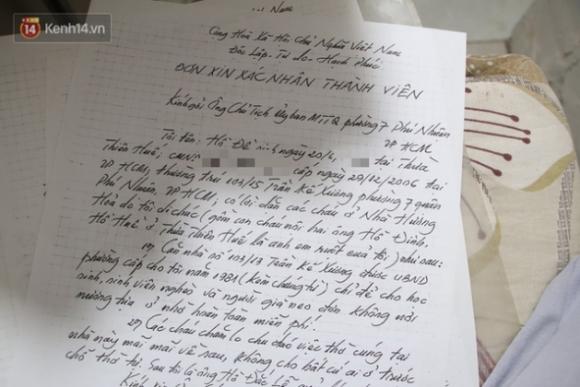 14 Kenh14.vn
Nam
Cộng Hoà Xã Hội Chủ Nghĩa Việt Nam
Độc Lập - Tự do - Hạnh phúc
ĐƠN XIN XÁC NHẬN THÀNH VIÊN
Kính gởi Ông Chủ Tịch Ủy ban MTTQ phường 7 Phú Nhuận
TP HCM
Tôi tên: Hồ Đề sinh ngày 20/6, tại Thừa
Thiên Huế; CMND: cấp ngày 20/12/2006 tại
TP HCM; thường trú 103/15 Trần Kế Xương phường 7 quận
Phú Nhuận, TP HCM; có lời dặn các cháu ở Nhà Hướng
Hoa do tôi di chúc (gồm con cháu nội hai ông Hồ Đình,
Hồ Huế ở Thừa Thiên Huế là anh em ruột của tôi) như sau:
1/ Căn nhà số 103/13 Trần Kế Xương được UBND
phường cấp cho tôi năm 1981 (kèm chứng từ) chỉ để cho học
sinh, sinh viên nghèo và người già neo đơn không nơi
nương tựa ở nhờ hoàn toàn miễn phí.
2/ Các cháu chăm lo chu đáo việc thờ cúng tại
nhà này mãi mãi về sau, không cho bất cứ ai ở trước
chỗ thờ tự. Sau tôi là ông Hồ Đắc
Kính xin